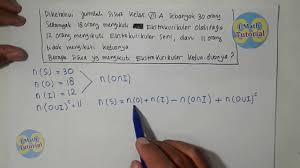 Diketahui jumlah siswa kelas VII A sebanyak 30 orang
Sebanyak 18 orang mengikuti Ekstrakurikuler olahraga
12 orang mengikuti Ekstrakurikuler Seni, dan 11 orang
tidak mengikuti keduanya
Berapa siswa yg mengikuti Ekstrakurikuler kedua duanya?
n(S) = 30
n(O) = 18
n(I) = 12
n(O∪I)ᶜ = 11
n(O∩I)
n(S) = n(O) + n(I) - n(O∩I) + n(O∪I)ᶜ
iMath
Tutorial
iMath
Tutorial